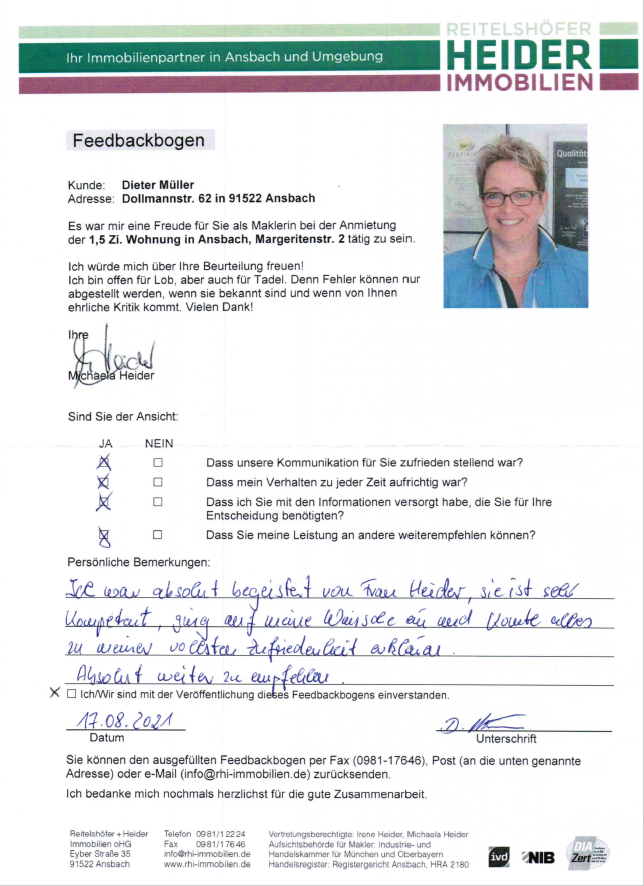 REITELSHÖFER
Ihr Immobilienpartner in Ansbach und Umgebung
HEIDER
IMMOBILIEN
Feedbackbogen
Qualität
Kunde: Dieter Müller
Adresse: Dollmannstr. 62 in 91522 Ansbach
Es war mir eine Freude für Sie als Maklerin bei der Anmietung
der 1,5 Zi. Wohnung in Ansbach, Margeritenstr. 2 tätig zu sein.
Ich würde mich über Ihre Beurteilung freuen!
Ich bin offen für Lob, aber auch für Tadel. Denn Fehler können nur
abgestellt werden, wenn sie bekannt sind und wenn von Ihnen
ehrliche Kritik kommt. Vielen Dank!
Ihre
Michaela Heider
Sind Sie der Ansicht:
JA NEIN
Dass unsere Kommunikation für Sie zufrieden stellend war?
Dass mein Verhalten zu jeder Zeit aufrichtig war?
Dass ich Sie mit den Informationen versorgt habe, die Sie für Ihre
Entscheidung benötigten?
Dass Sie meine Leistung an andere weiterempfehlen können?
Persönliche Bemerkungen:
Ich war absolut begeistert von Frau Heider, sie ist sehr
kompetent, ging auf meine Wünsche ein und konnte alles
zu meiner vollsten Zufriedenheit erklären.
Absolut weiter zu empfehlen.
Ich/Wir sind mit der Veröffentlichung dieses Feedbackbogens einverstanden.
17.08.2021
Datum Unterschrift
Sie können den ausgefüllten Feedbackbogen per Fax (0981-17646), Post (an die unten genannte
Adresse) oder e-Mail (info@rhi-immobilien.de) zurücksenden.
Ich bedanke mich nochmals herzlichst für die gute Zusammenarbeit.
Reitelshöfer + Heider Telefon 0981/12224 Vertretungsberechtigte: Irene Heider, Michaela Heider
Immobilien oHG Fax 0981/17646 Aufsichtsbehörde für Makler: Industrie- und
Eyber Straße 35 info@rhi-immobilien.de Handelskammer für München und Oberbayern
91522 Ansbach www.rhi-immobilien.de Handelsregister: Registergericht Ansbach, HRA 2180
ivd NIB DIA Zert